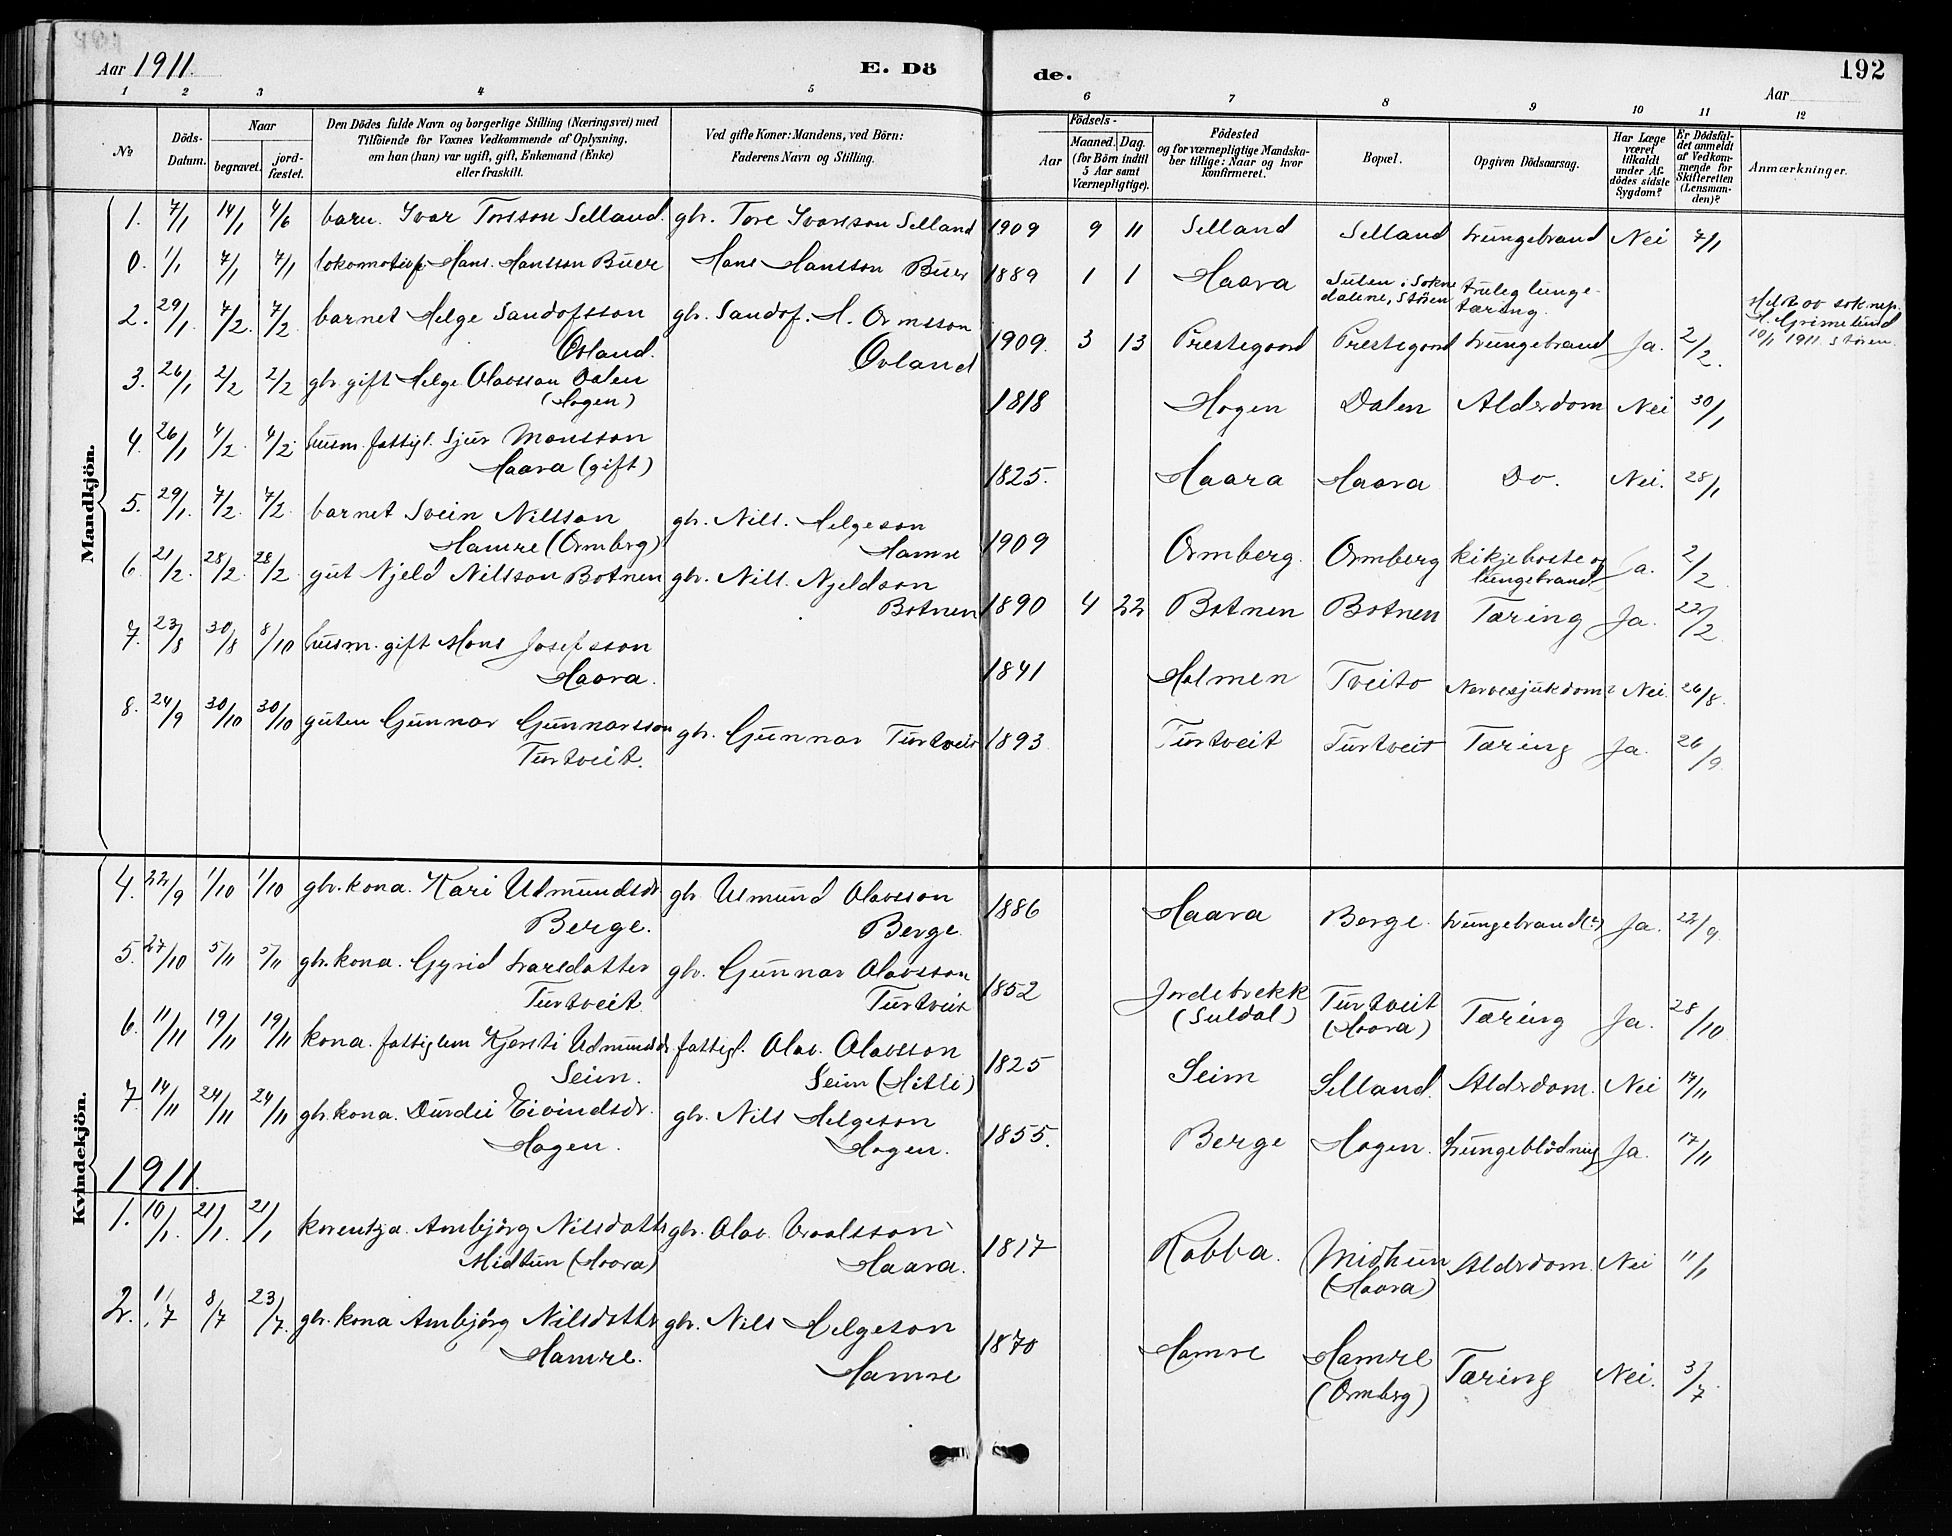 Aar 1911. E. Dö de. Aar 192
1 2 3 4 5 6 7 8 9 10 11 12
№
Döds-Datum.
Naar
begravet.
jordfæstet.
Den Dödes fulde Navn og borgerlige Stilling (Næringsvei) med
Tilföiende for Voxnes Vedkommende af Oplysning,
om han (hun) var ugift, gift, Enkemand (Enke)
eller fraskilt.
Ved gifte Koner: Mandens, ved Börn:
Faderens Navn og Stilling.
Födsels-
Aar
Maaned. Dag.
(for Börn indtil
5 Aar samt
Værnepligtige).
Födested
og for værnepligtige Mandska-
ber tillige: Naar og hvor
konfirmeret.
Bopæl.
Opgiven Dödsaarsag.
Har Læge
været
tilkaldt
under Af-
dödes sidste
Sygdom?
Er Dödsfal-
det anmeldt
af Vedkom-
mende for
Skifteretten
(Lensman-
den)?
Anmærkninger.
Mandkjön.
1. 7/1 14/1 4/6 barn. Ivar Torsson Selland. gbr. Tore Ivarsson Selland 1909 9 11 Selland Selland Lungebrand Nei 7/1
0. 1/1 7/1 7/1 Hans Hansson Büer Hans Hansson Büer 1889 1 1 Haara Sulen i Sokne
dalene, Stören truleg lunge-
tæring.
Meld av soknep.
H. Grimelund
10/1 1911. Stören.
2. 29/1 7/2 7/2 barnet Helge Sandofsson
Ovland. gbr. Sandof. H. Ormsson
Ovland 1909. 3 13 Prestegard Prestegard Lungebrand Ja. 2/2.
3. 26/1 2/2 2/2 gbr. gift Helge Olavsson Dalen
(Hogen) 1818 Hogen Dalen Alderdom Nei 30/1
4. 26/1 4/2 4/2 husm. fattigl. Sjur Monsson
Haara (gift) 1825. Haara Haara Do. Nei. 28/1
5. 29/1 7/2 7/2 barnet Svein Nilsson
Hamre (Ormberg) gbr. Nils. Helgeson
Hamre 1909 Ormberg. Ormberg kikjehoste og
lungebrand Ja. 2/2
6. 21/2 28/2 28/2 gut Njeld Nilsson Botnen gbr. Nils. Njeldson
Botnen 1890 4 22 Botnen Botnen Tæring Ja. 22/2
7. 23/8 30/8 8/10 husm. gift Mons Josefsson
Haara. 1841 Holmen Tveito Nervesjukdom Nei 26/8.
8. 24/9 30/10 30/10 guten Gunnar Gunnarsson
Turtveit. gbr. Gunnar Turtveit 1893 Turtveit Turtveit Tæring Ja. 26/9
Kvindekjön.
4. 22/9 1/10 1/10 gbr. kona. Kari Udmundsdr.
Berge. gbr Usmund Olavsson
Berge. 1886 Haara Berge. Lungebrand (?) Ja. 22/9
5. 27/10 5/11 5/11 gbr. kona. Gyrid Larsdotter
Turtveit gbr. Gunnar Olavsson
Turtveit 1852 Jordebrekk
(Suldal) Turtveit
(Haara) Tæring Ja. 28/10
6. 11/11 19/11 19/11 kona. fattiglem Kjersti Udmundsdr
Seim. fattigl. Olav. Olavsson
Seim (Hitli) 1825 Seim Selland. Alderdom. Nei 14/11
7. 14/11 24/11 24/11 gbr. kona. Durdei Eivindsdr.
Hogen. gbr. Nils Helgeson
Hogen. 1855. Berge Hogen. Lungeblödning Ja. 17/11
1911.
1. 10/1 21/1. 21/1 Ambjörg Nilsdotter
Midtun (Haara) gbr. Olav.
Haara. 1817 Rabba. Midtun
(Haara) Alderdom. Nei 11/1
2. 1/7 8/7 23/7. gbr. kona Ambjörg Nilsdotter
Hamre. gbr. Nils Helgeson
Hamre 1870 Hamre Hamre
(Ormberg) Tæring Nei. 3/7